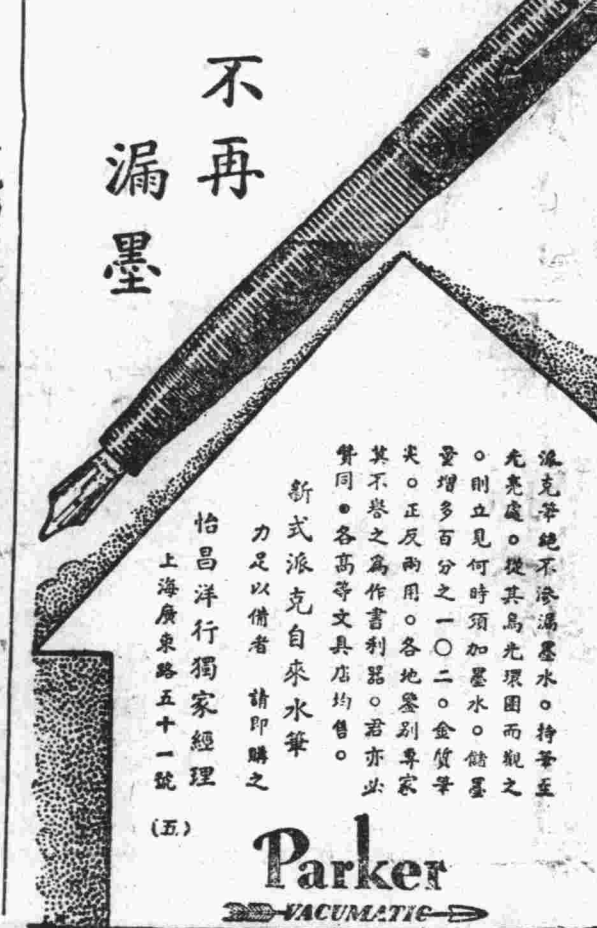 不再
漏墨
派克筆絕不滲漏墨水。持筆至
光亮處。從其烏光環圈而觀之
。則立見何時須加墨水。儲墨
量增多百分之一〇二。金質筆
尖。正反兩用。各地鑒別專家
莫不譽之為作書利器。君亦必
贊同。各高等文具店均售。
新式派克自來水筆
力足以備者 請即購之
怡昌洋行獨家經理
上海廣東路五十一號
(五)
Parker
VACUMATIC